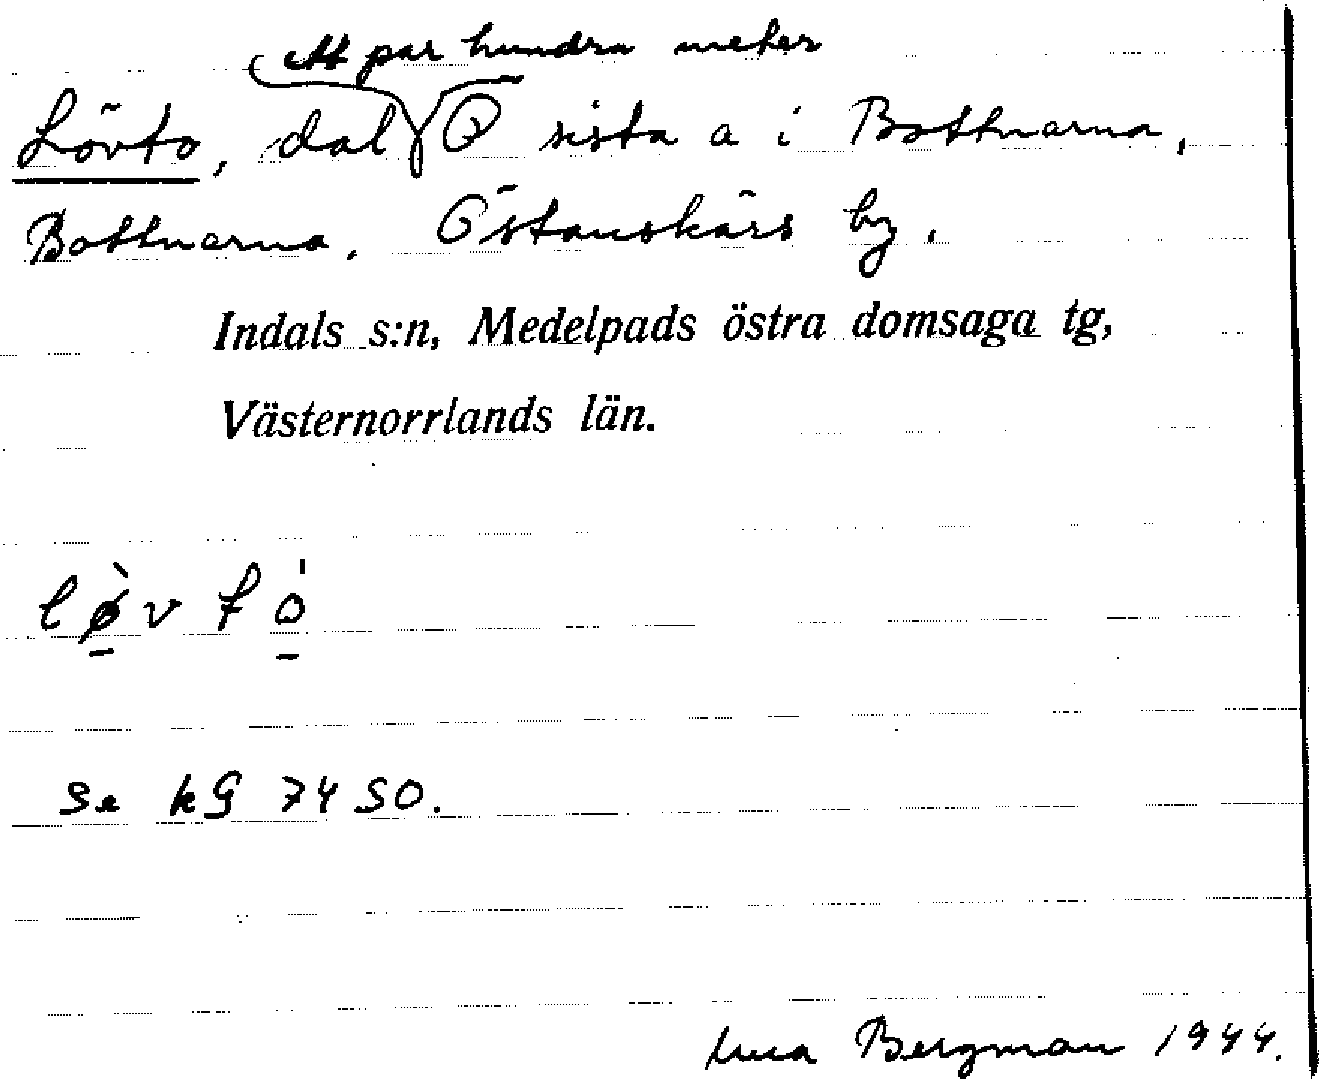 ett par hundra meter
Lövto, dal Ö sista a i Bottnarna,
Bottnarna. Östanskärs by.
Indals s:n, Medelpads östra domsaga tg,
Västernorrlands län.
lø̀v tó
se kG 7450.
Bergman 1944.